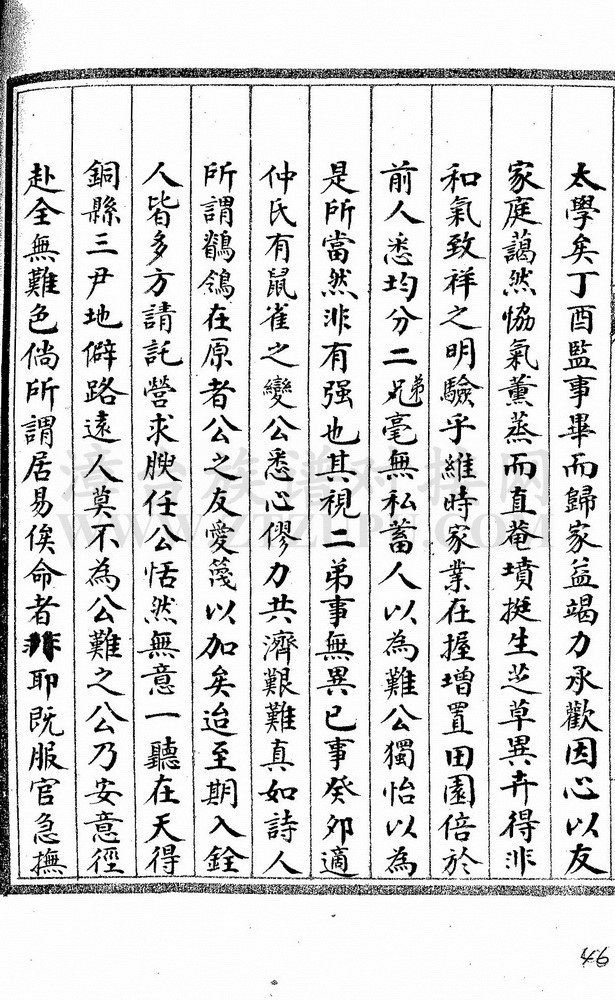 太學矣丁酉監事畢而歸家益竭力承歡因心以友
家庭藹然恊氣薰蒸而直菴墳挺生芝草異卉得非
和氣致祥之明驗乎維時家業在握增置田園倍於
前人悉均分二兄弟毫無私蓄人以為難公獨怡以為
是所當然非有强也其視二弟事無異已事癸夘適
仲氏有鼠雀之變公悉心僇力共濟艱難真如詩人
所謂鶺鴒在原者公之友愛篾以加矣迨至期入銓
人皆多方請託營求腴任公恬然無意一聽在天得
銅縣三尹地僻路遠人莫不為公難之公乃安意徑
赴全無難色倘所謂居易俟命者非耶既服官急撫
46
漳台族谱对接网